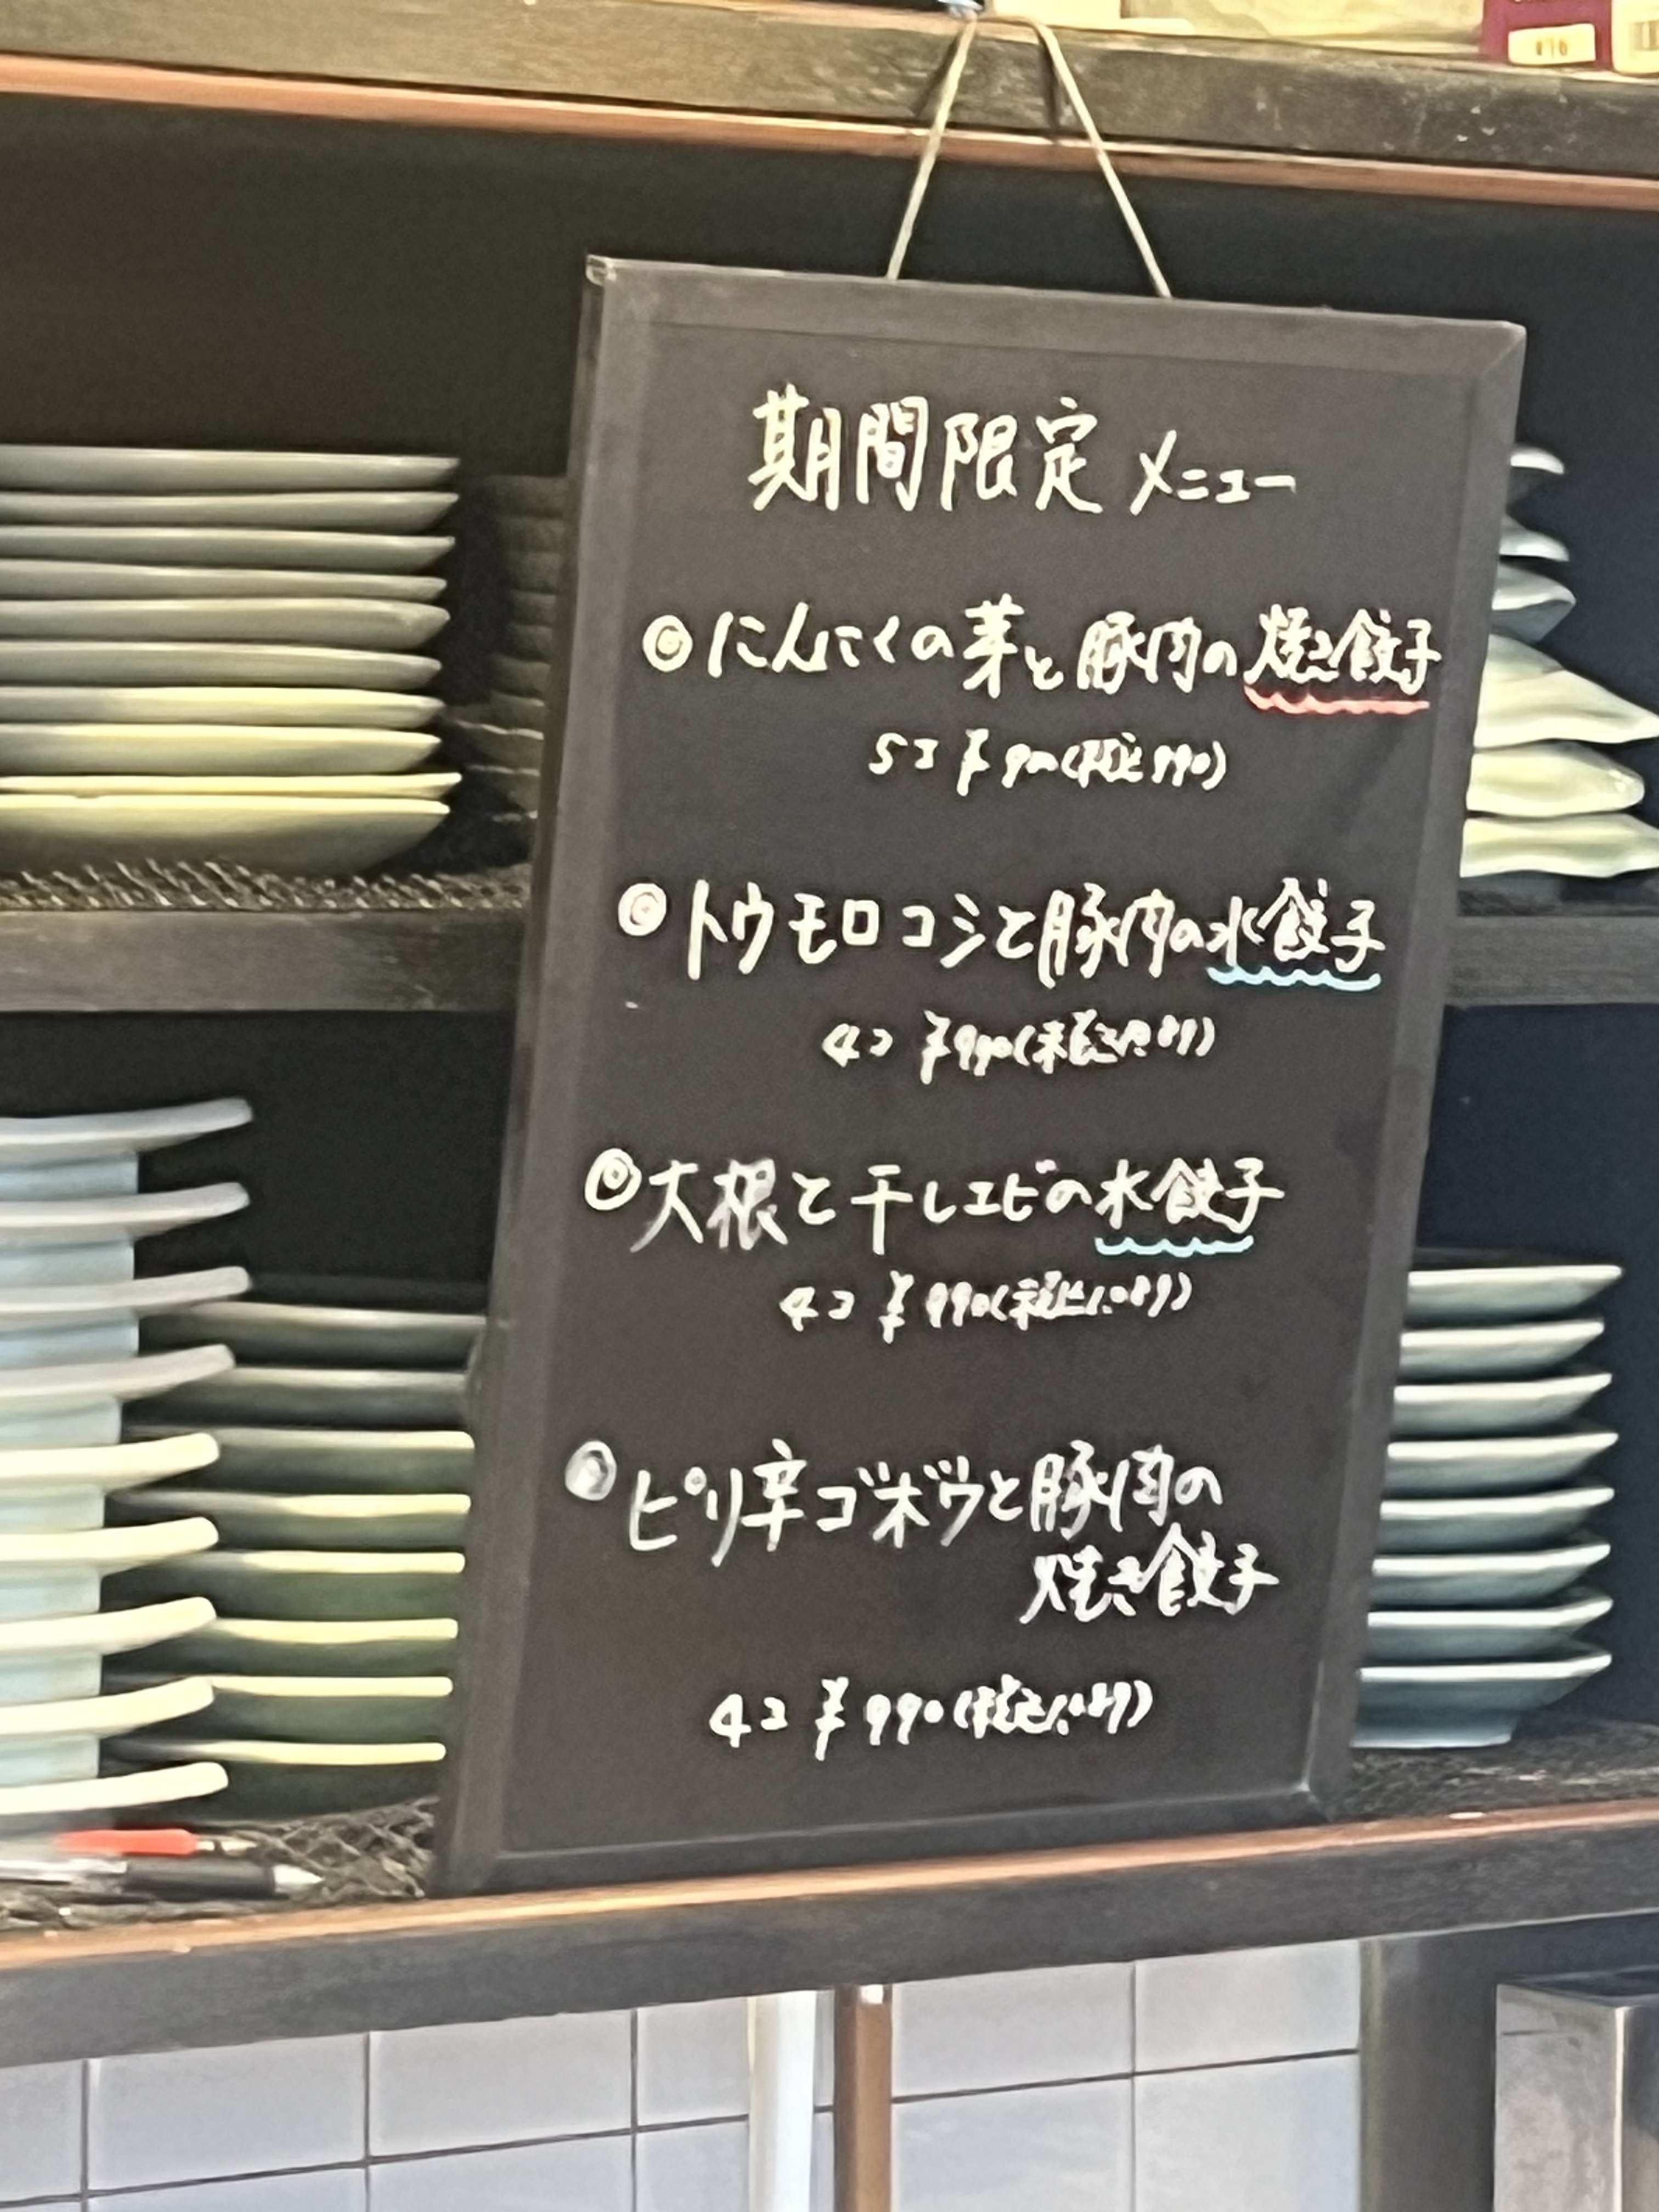 期間限定メニュー
◎にんにくの芽と豚肉の焼き餃子
5コ ¥900(税込990)
◎トウモロコシと豚肉の水餃子
4コ ¥990(税込1,089)
◎大根と干しエビの水餃子
4コ ¥990(税込1,089)
◎ピリ辛ゴボウと豚肉の
焼き餃子
4コ ¥990(税込1,089)